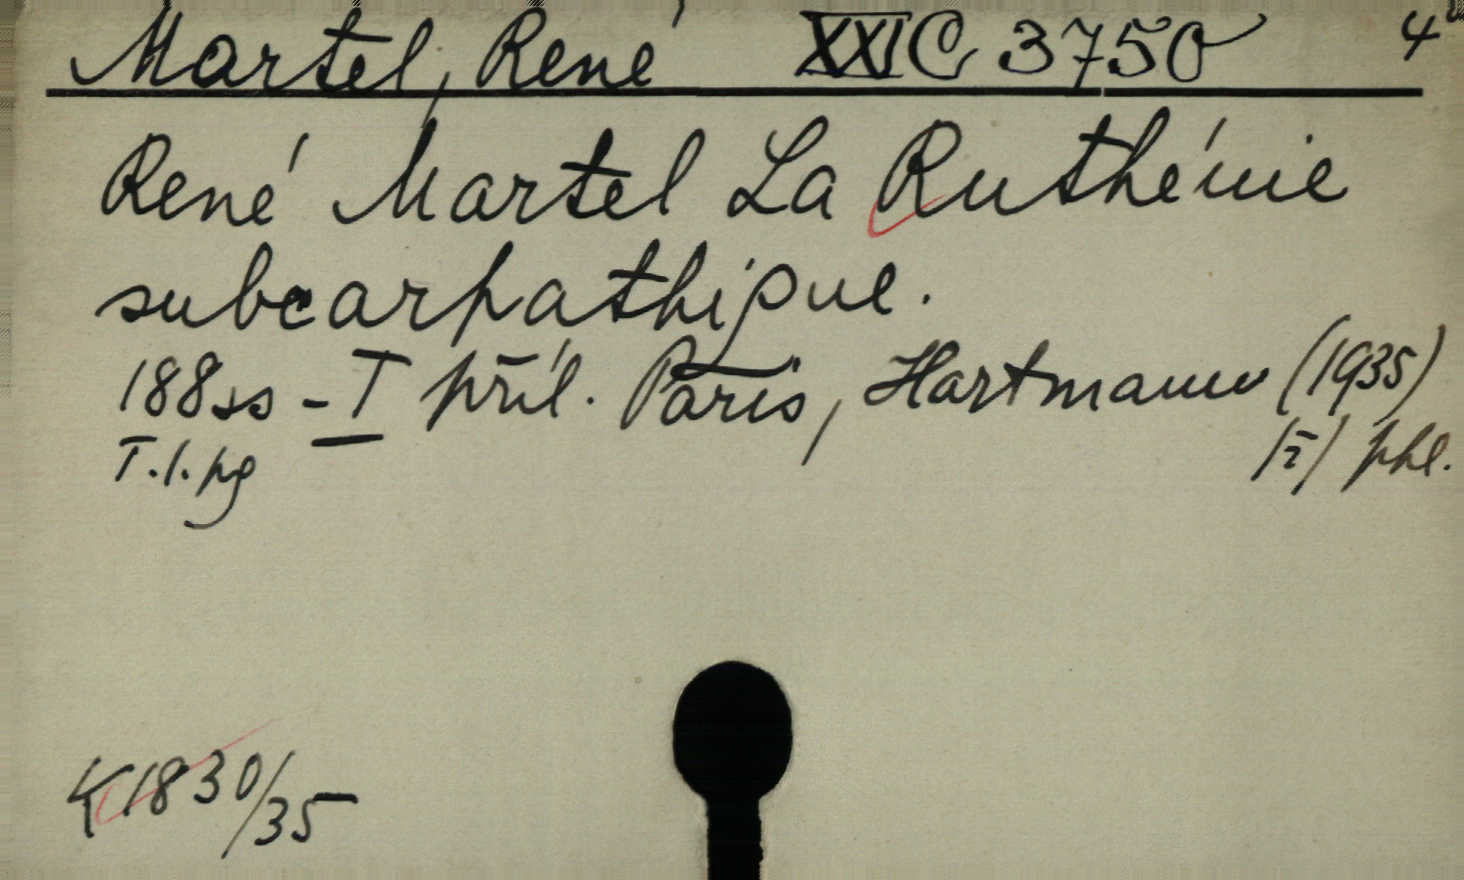 Martel, René XXI C 3750 4°
René Martel La Ruthénie
subcarpathique.
188 ss - I příl. Paris, Hartmann (1935)
T.l.pg
K 1830/35